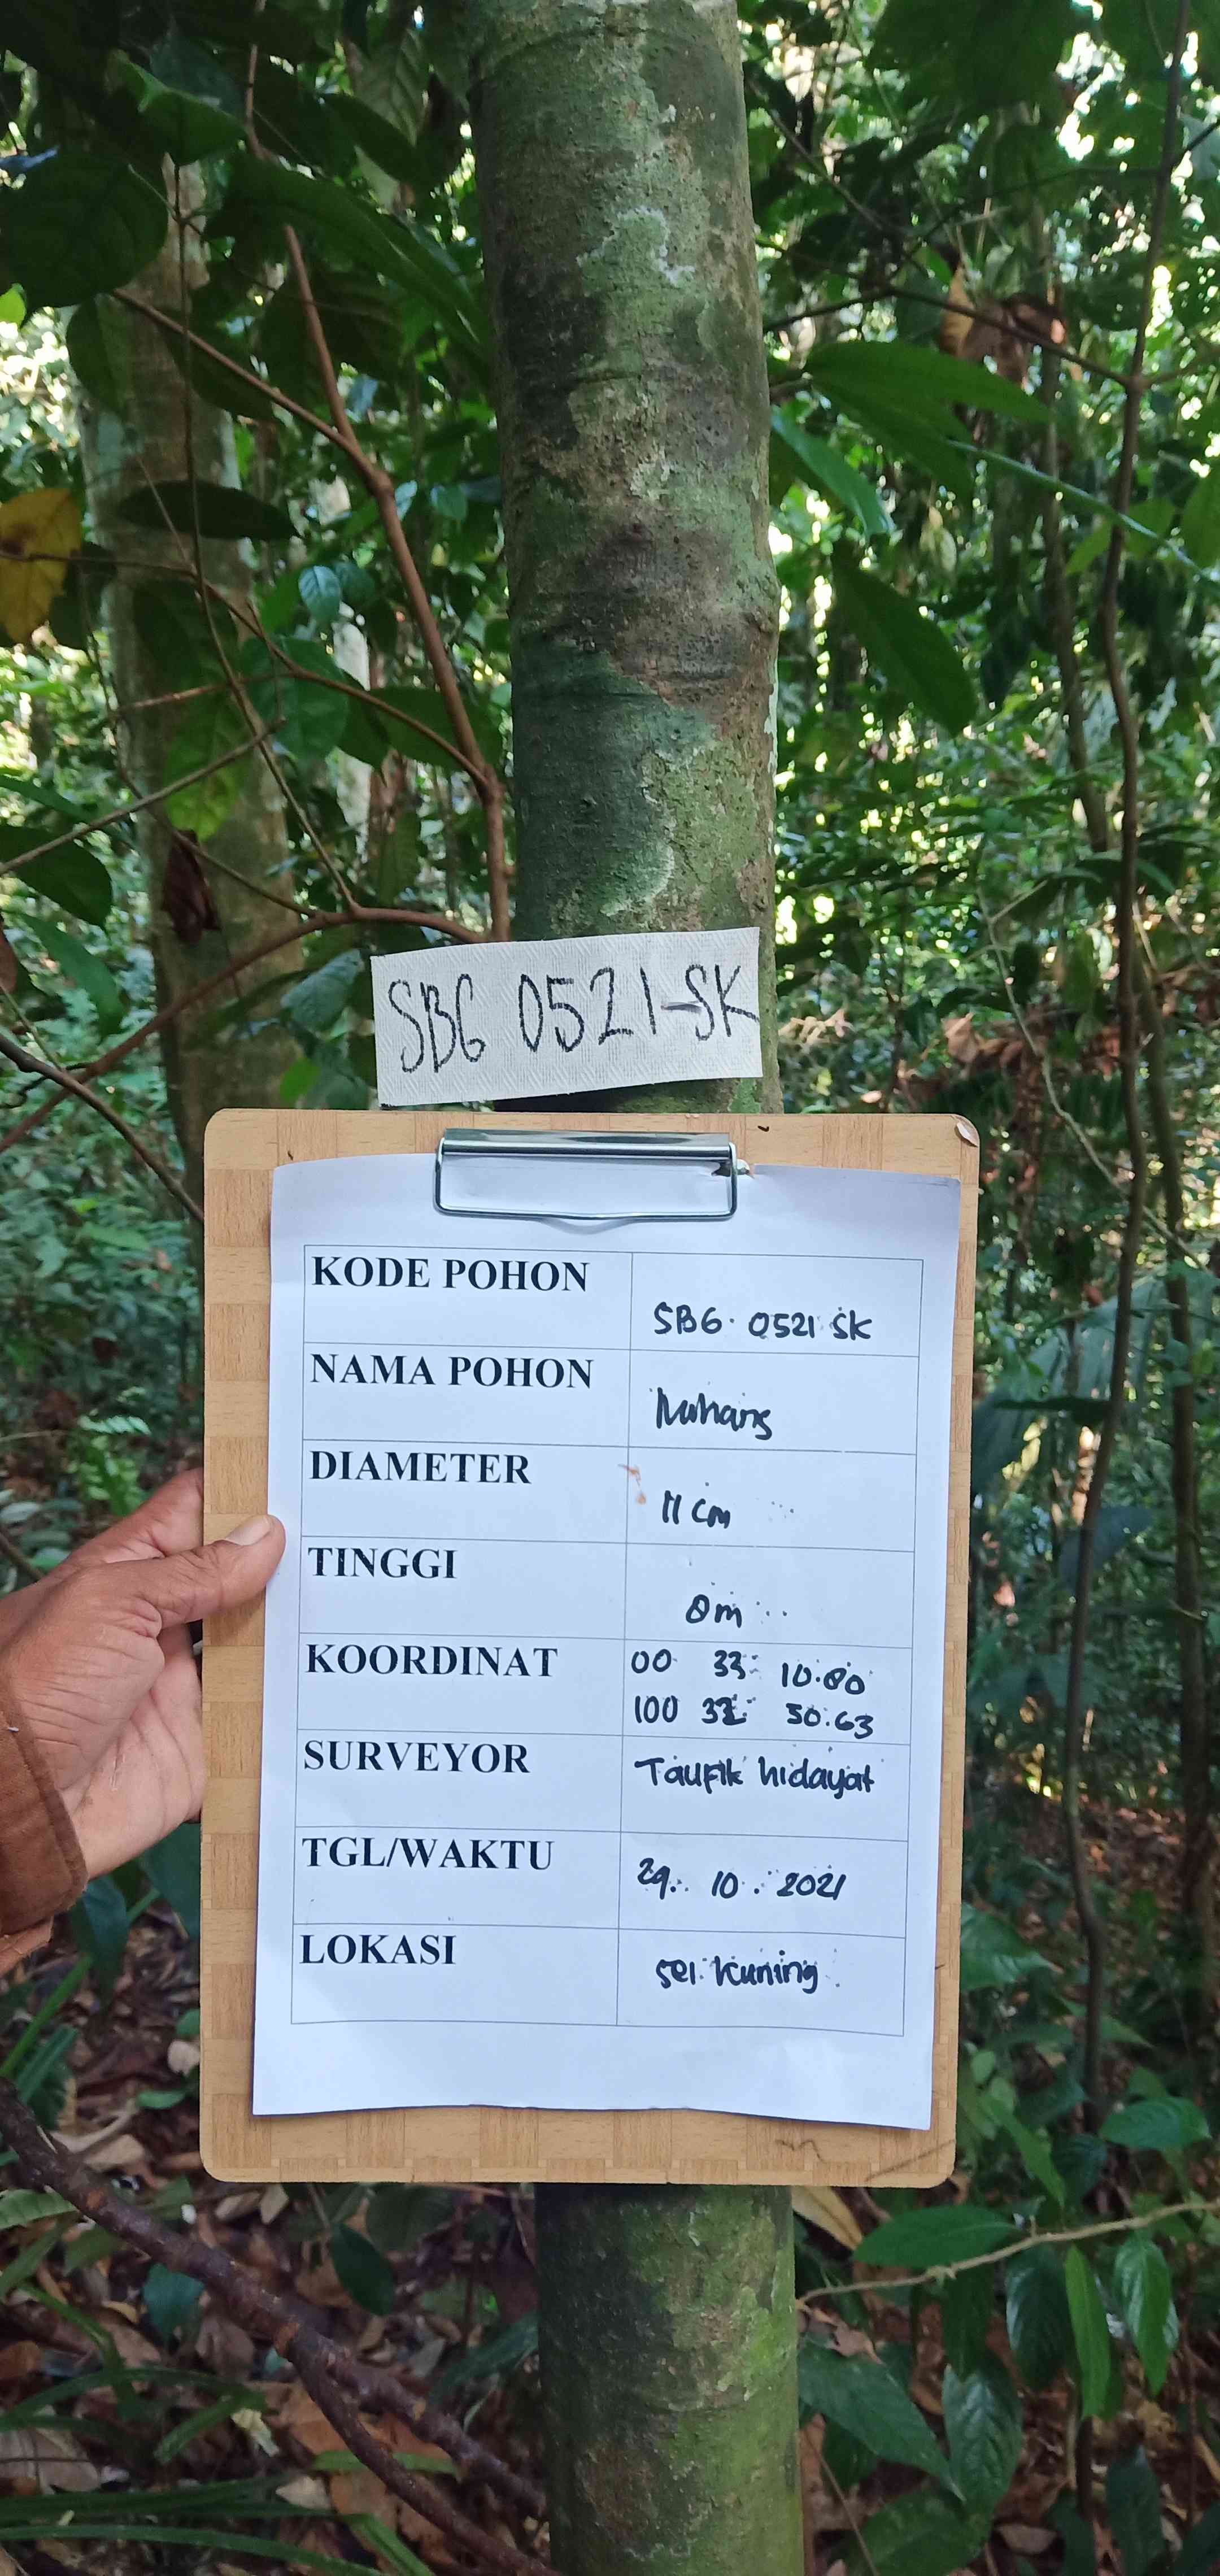 SBG 0521-SK
KODE POHON
SBG. 0521 SK
NAMA POHON
DIAMETER
11 cm
TINGGI
8m
KOORDINAT
00 33 10.80
100 32 50.63
SURVEYOR
Taufik hidayat
TGL/WAKTU
29. 10. 2021
LOKASI
sei. Kuning